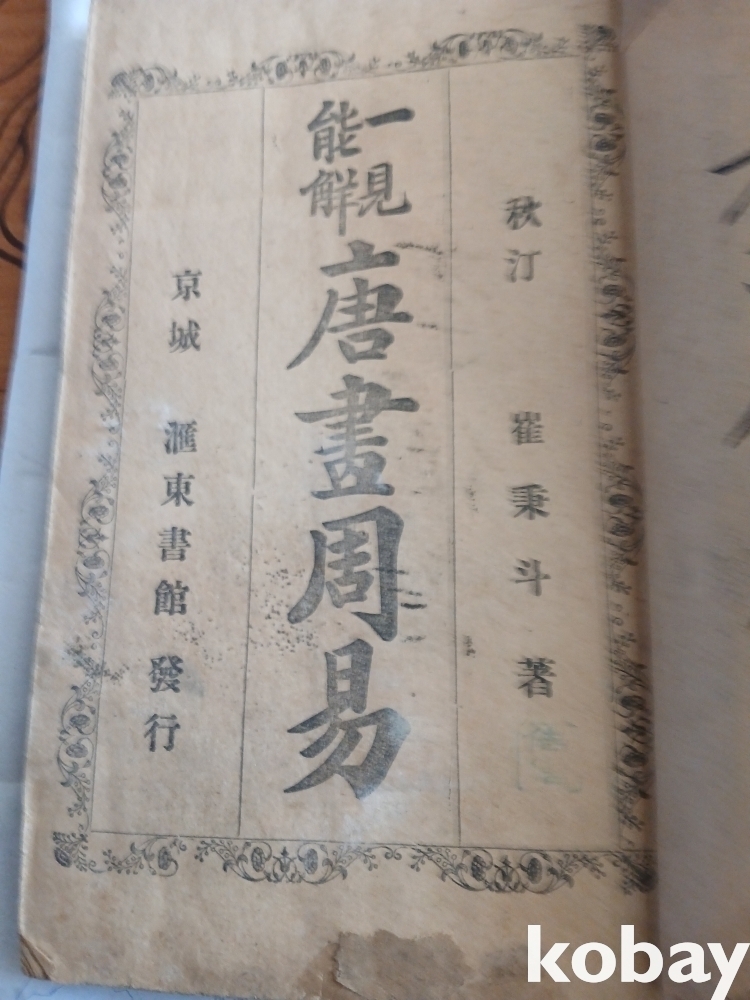 秋汀 崔秉斗 著
一見能解 唐畫周易
京城 滙東書館 發行
kobay